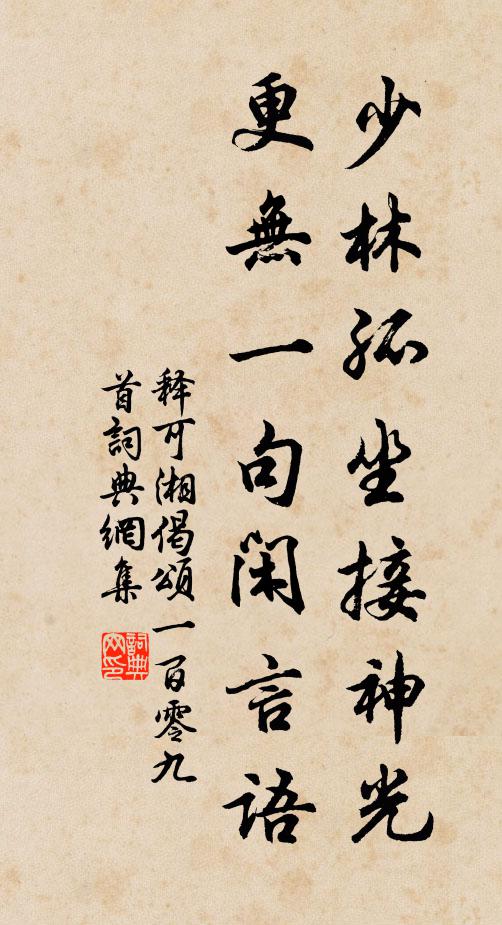 少林孤坐接神光
更無一句閑言語
释可湘偈頌一百零九
首詞典網集
詞典
网印